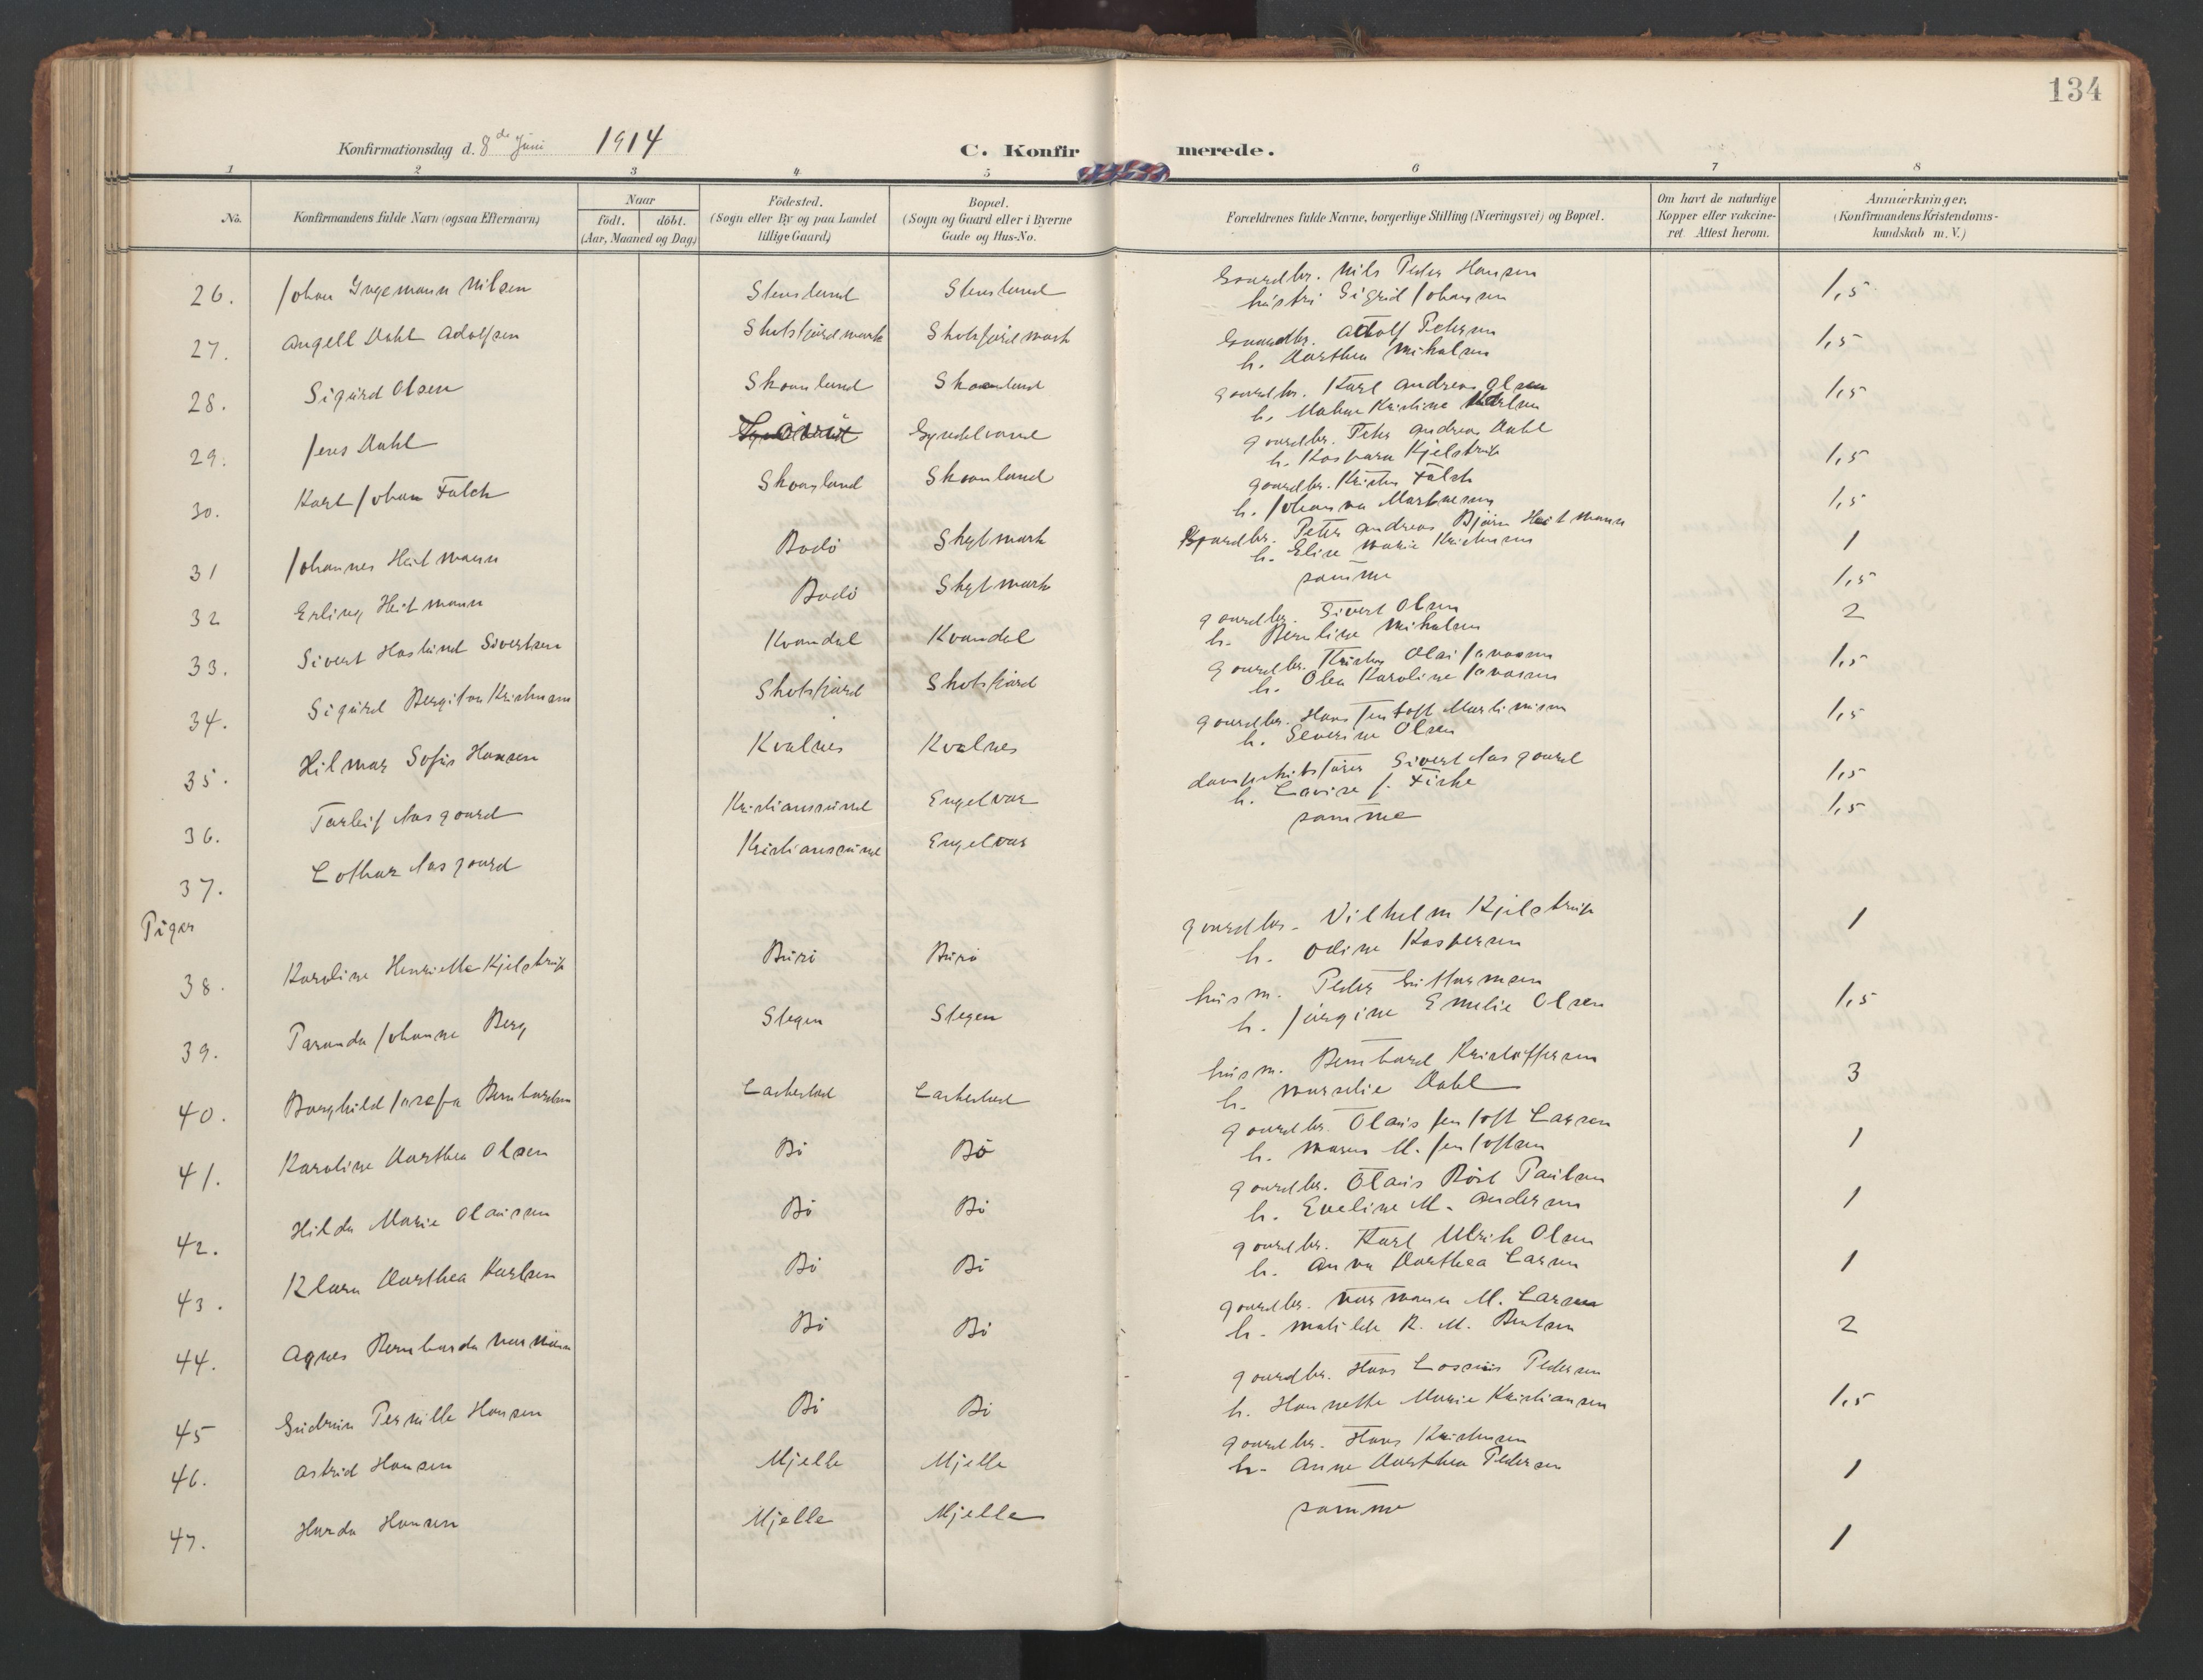 134
Konfirmationsdag d. 8de Juni 1914
C. Konfirmerede.
1 2 3 4 5 6 7 8
No.
Konfirmandens fulde Navn (ogsaa Efternavn)
Naar
født. døbt.
(Aar, Maaned og Dag)
Fødested.
(Sogn eller By og paa Landet
tillige Gaard)
Bopæl.
(Sogn og Gaard eller i Byerne
Gade og Hus-No.
Forældrenes fulde Navne, borgerlige Stilling (Næringsvei) og Bopæl.
Om havt de naturlige
Kopper eller vakcine-
ret. Attest herom.
Anmærkninger,
(Konfirmandens Kristendoms-
kundskab m. V.)
26. Johan Ingemann Nilsen Stensland Stensland Gaardbr. Nils Peder Hansen 1,5
hustri Sigrid Johansen
27. Angell Dahl Adolfsen Skotsfjordmark Skotsfjordmark Gaardbr. Adolf Petersen 1,5
h. Dorthea Mikalsen
28. Sigurd Olsen Skaanland Skaanland gaardbr. Karl Andreas Olsen 1,5
h. Kristine
29. Jens Dahl gaardbr. Peter Andreas Dahl 1,5
h. Kaspara Kjelstrup
30. Karl Johan Falch Skaanland Skaanland gaardbr. Falch 1,5
h. Johanna
31 Johannes Heitmann Bodö gaardbr. Peter Andreas Björn Heitmann 1
h. Elise Marie Kristensen
32 Erling Heitmann Bodö samme 1,5
33. Sivert Haslund Sivertsen Kvandal Kvandal gaardbr. Sivert Olsen 2
h. Mikalsen
34. Sigurd Kristensen Skotsfjord Skotsfjord gaardbr. 1,5
h. Olea Karoline
35. Hilmar Sofus Hansen Kvalnes Kvalnes gaardbr. Hans Jentoft Martinisen 1,5
h. Severine Olsen
36. Torleif Aasgaard Kristianssund Engelvær Sivert Aasgaard 1,5
h. Lovise f. Fiske
37. Lothar Aasgaard Kristianssund Engelvær samme 1,5
Piger
38. Karoline Henriette Kjelstrup Burö Burö gaardbr. Vilhelm Kjelstrup 1
h. Odine Kaspersen
39. Johanne Berg Stegen Stegen husm. Peder Guttormsen 1,5
h. Jörgine Emelie Olsen
40. Borghild Josefa Bernhardsen husm. Bernhard Kristoffersen 3
h. Dahl
41. Karoline Dorthea Olsen Bö Bö gaardbr. Olaus Jentoft Larsen 1
h. Maren M. Jentoftsen
42. Hilda Marie Olaussen Bö Bö gaardbr. Olaus Röst Paulsen 1
h. Eveline M. Andersen
43. Klara Dorthea Karlsen Bö Bö gaardbr. Karl Ulrik Olsen 1
h. Anna Dorthea Larsen
44. Agnes Bernharda Bö Bö gaardbr. Normann M. Larsen 2
h. Matilde K. M. Bentsen
45 Gudrun Pernille Hansen Bö Bö gaardbr. Hans Lossius Pedersen 1,5
h. Hannette Marie Kristiansen
46. Astrid Hansen Mjelle Mjelle gaardbr. Hans Kristensen 1
h. Anne Dorthea Pedersen
47. Harda Hansen Mjelle Mjelle samme 1